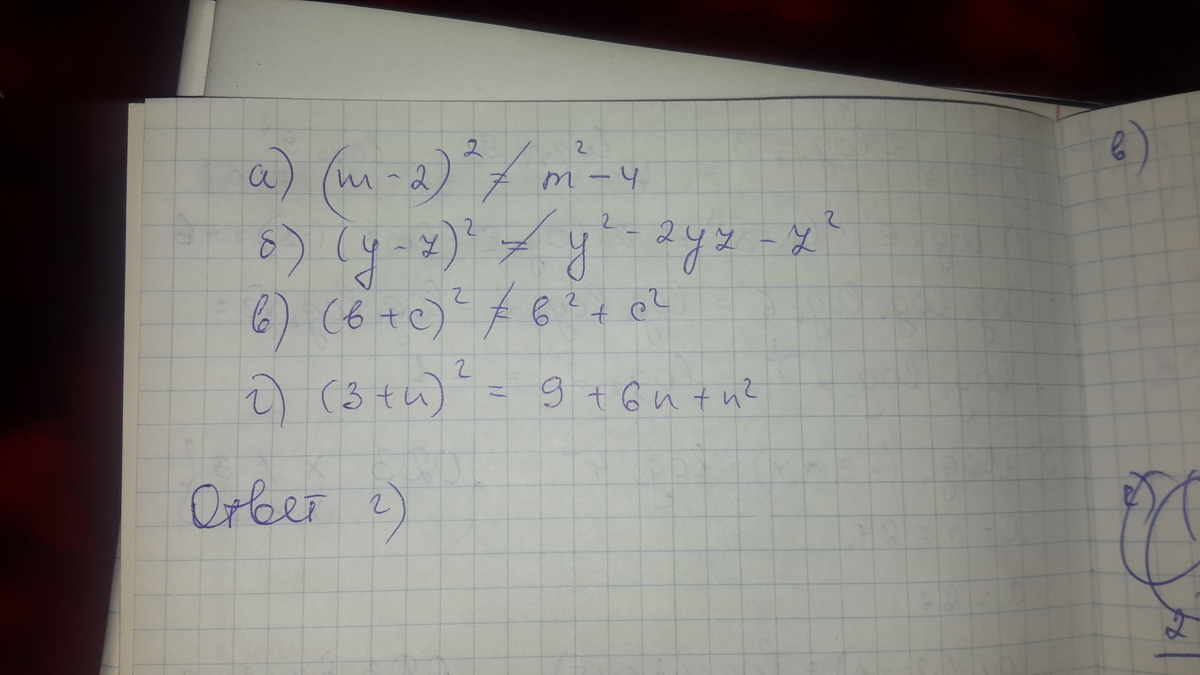 а) (m - 2)² ≠ m² - 4
б) (y - z)² ≠ y² - 2yz - z²
в) (в + с)² ≠ в² + с²
г) (3 + n)² = 9 + 6n + n²
Ответ г)
в)